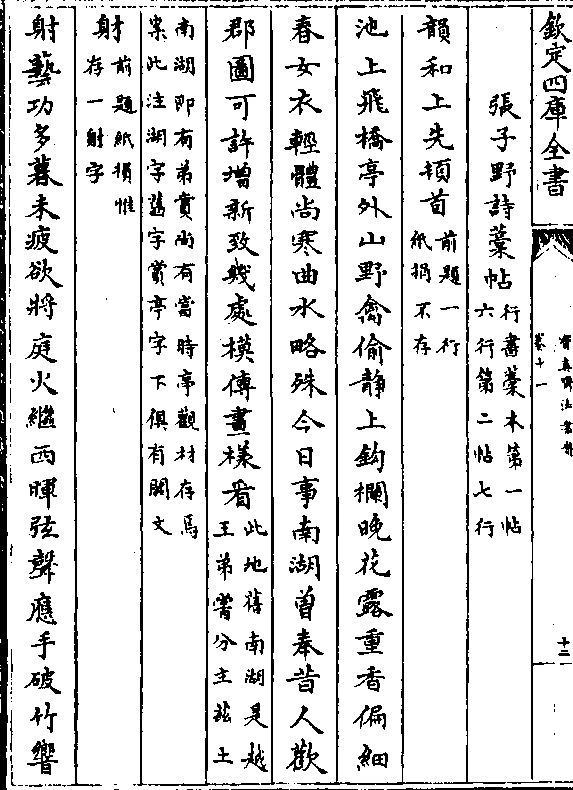 欽定四庫全書
寶真齋法書贊
卷十一
十三
張子野詩藁帖行書藁本第一帖
六行第二帖七行
韻和上先頓首前題一行
紙損不存
池上飛橋亭外山野禽偷靜上鈎欄晚花露重香偏細
春女衣輕體尚寒曲水略殊今日事南湖曾奉昔人歡
郡圖可許增新致幾處模傳畫㨾看此地舊南湖是越
王弟嘗分主兹土
南湖即有弟賞尚有當時亭觀材存焉
案此注湖字舊字賞亭字下俱有闕文
射前題紙損惟
存一射字
射藝功多暮未疲欲將庭火繼西暉弦聲應手破竹響